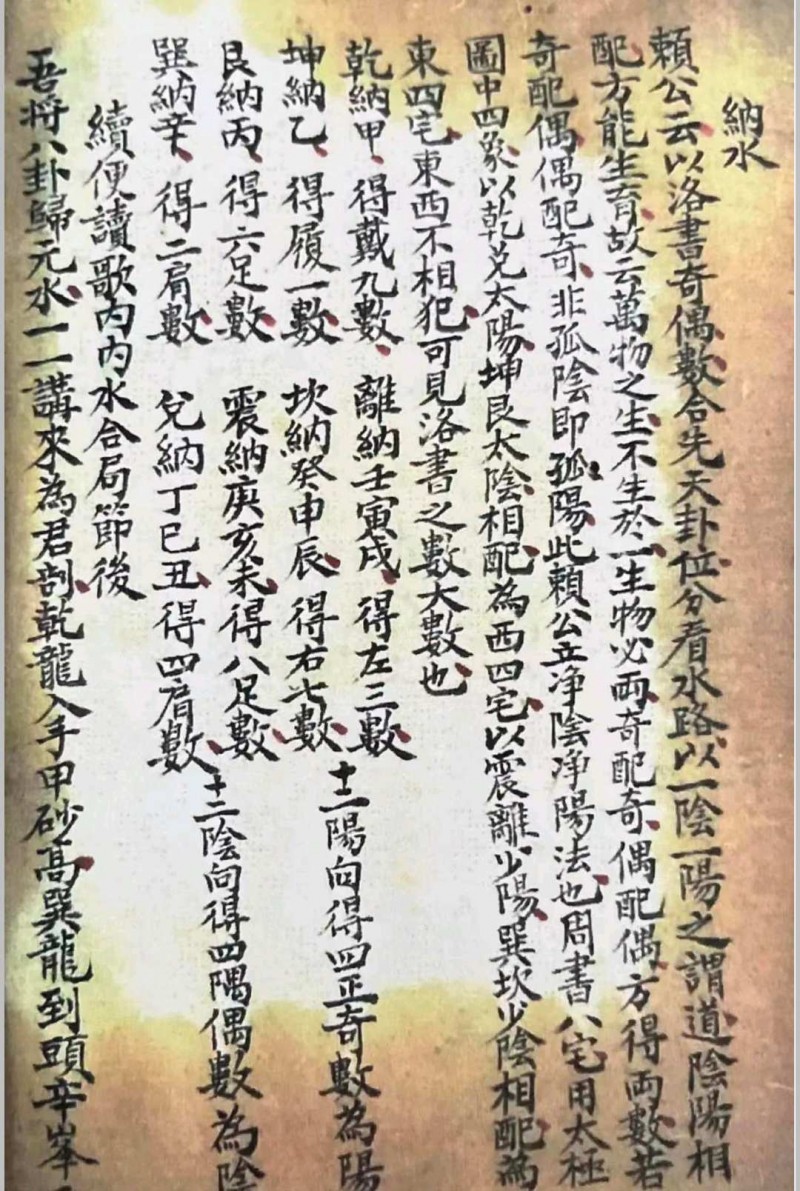 納水
賴公云以洛書奇偶數合先天卦位分看水路以一陰一陽之謂道陰陽相
配方能生育故云萬物之生不生於一生物必両奇配奇偶配偶方得両數若
奇配偶偶配奇非孤陰即孤陽此賴公立净陰净陽法也周書八宅用太極
圖中四象以乾兌太陽坤艮太陰相配為西四宅以震離少陽巽坎少陰相配為
東四宅東西不相犯可見洛書之數大數也
乾納甲得戴九數離納壬寅戌得左三數
坤納乙得履一數坎納癸申辰得右七數十二陽向得四正奇數為陽
艮納丙得六足數震納庚亥未得八足數
巽納辛得二肩數兌納丁巳丑得四肩數十二陰向得四隅偶數為陰
續便讀歌内内水合局節後
吾将八卦歸元水一一講來為君剖乾龍入手甲砂高巽龍到頭辛峯